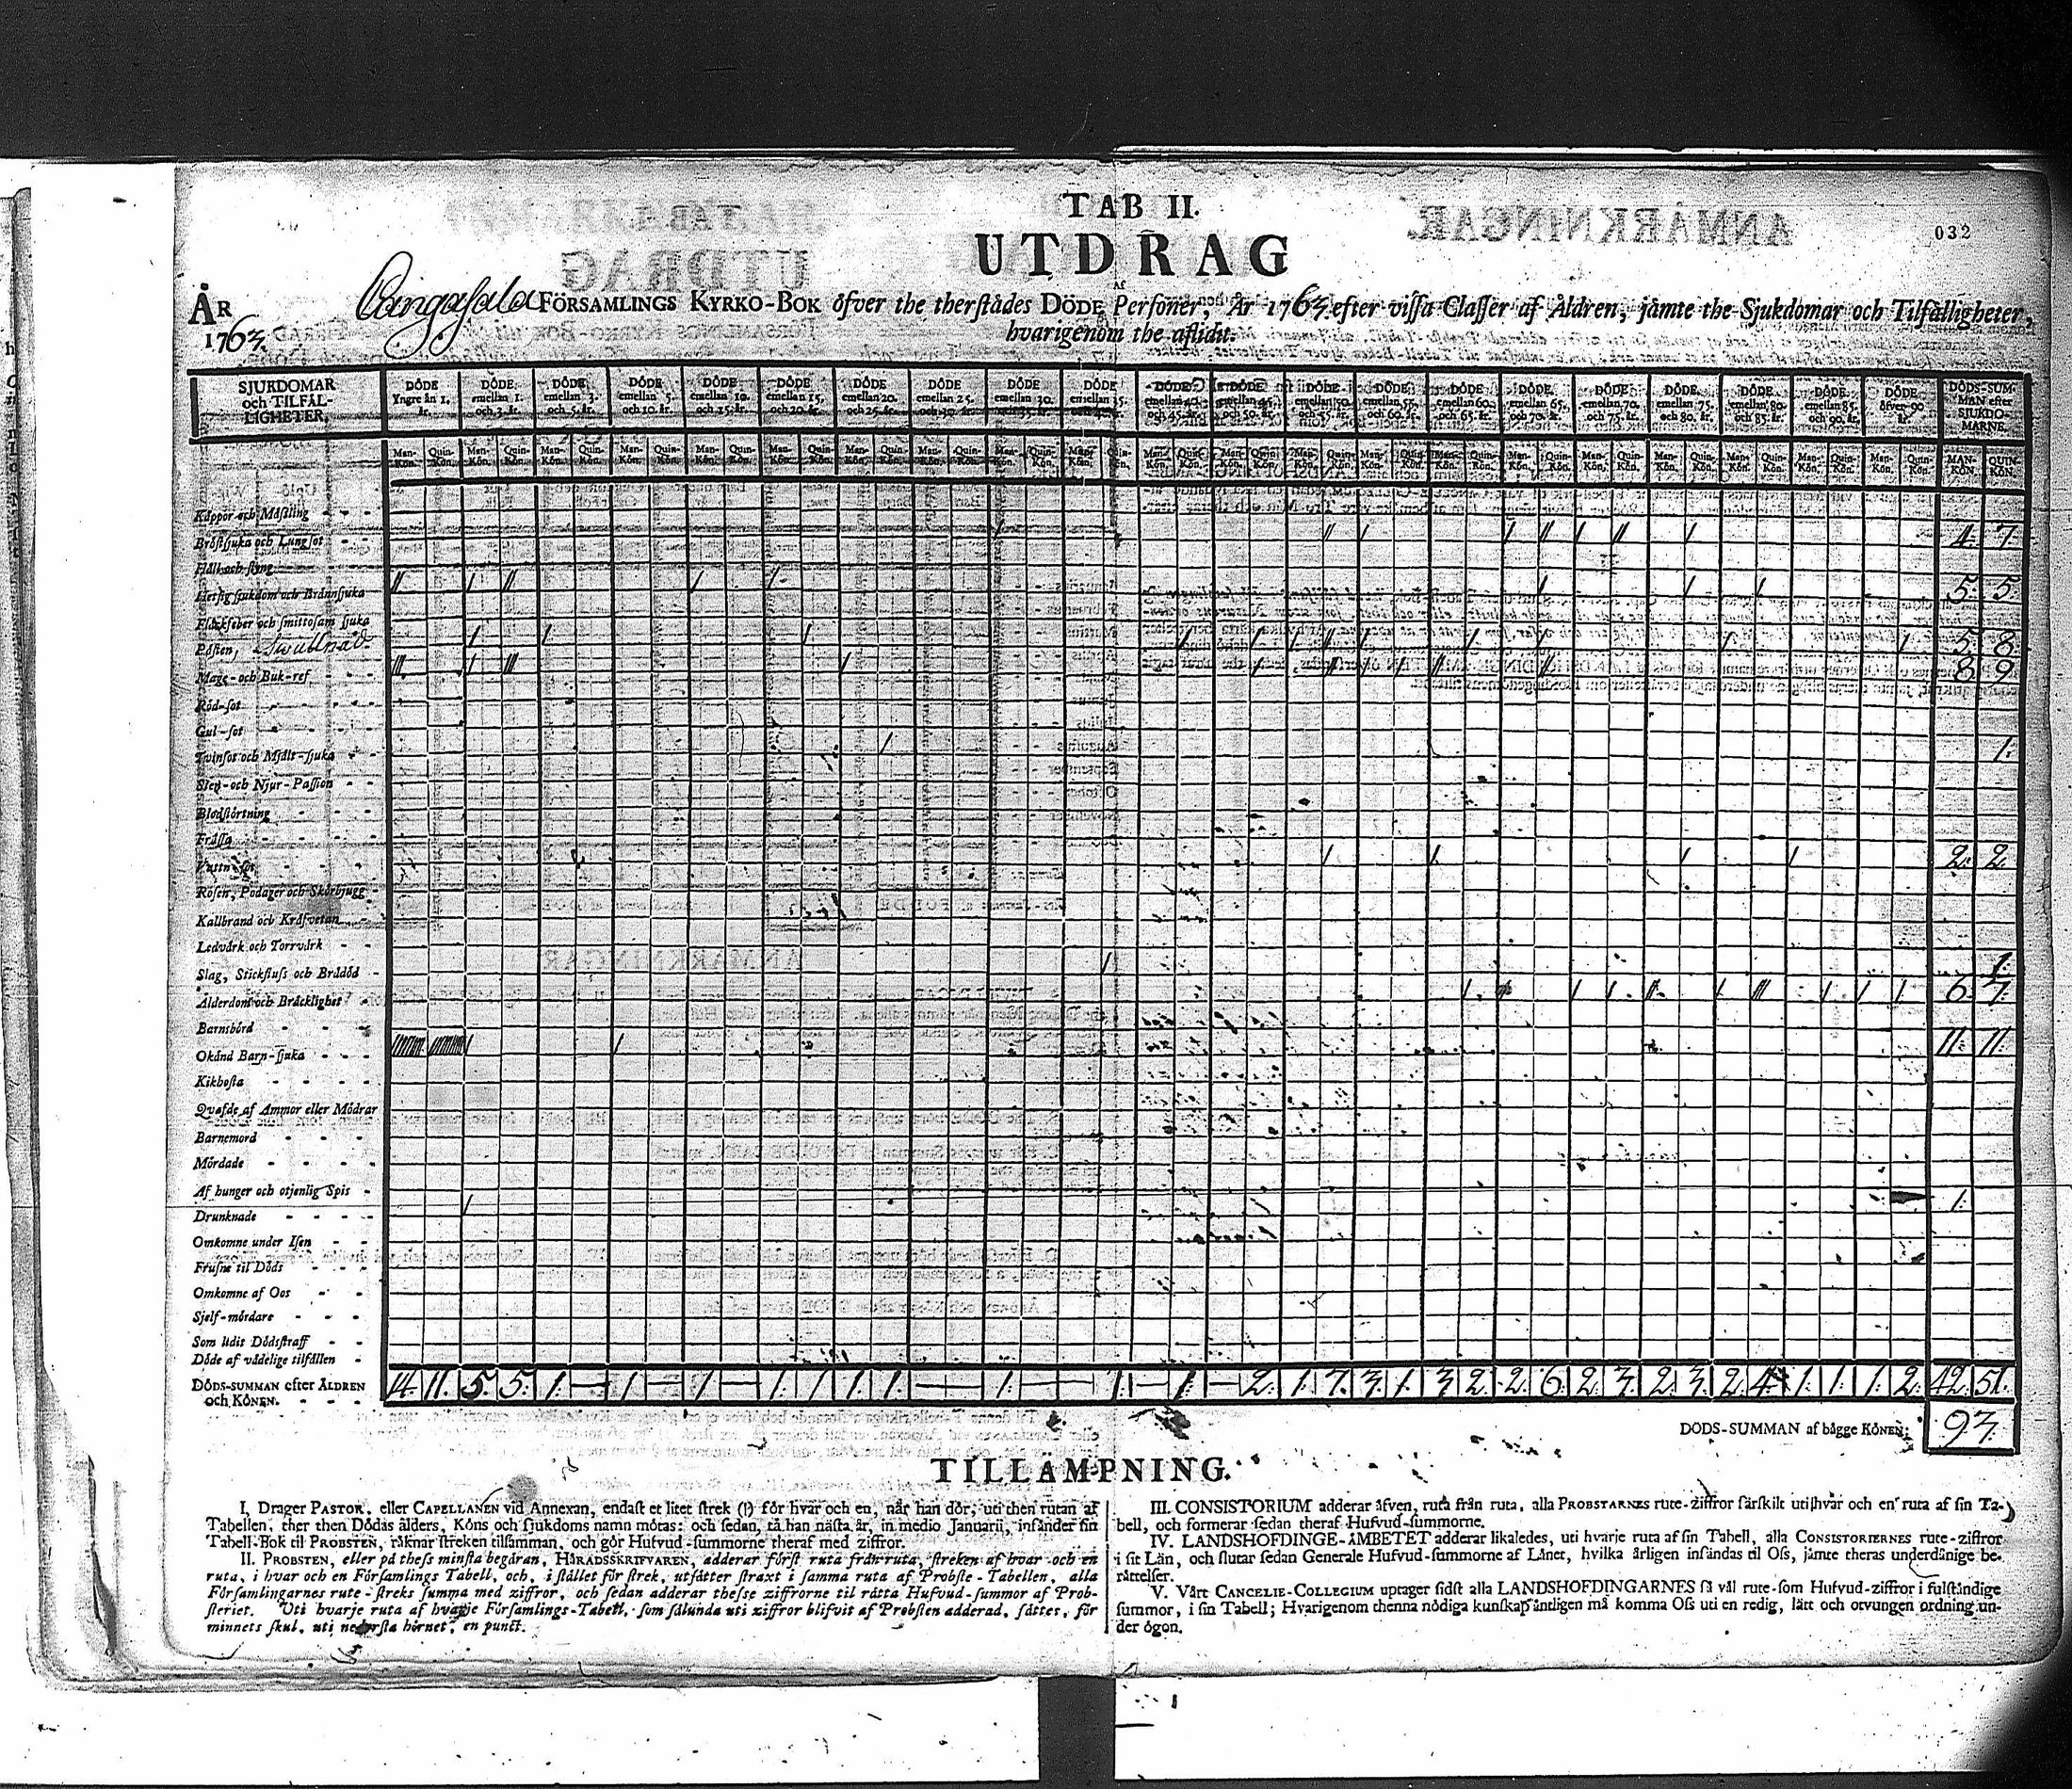 TAB II.
032
UTDRAG
AF
ÅR
1763.
Cangasala FÖRSAMLINGS KYRKO-BOK öfver the therstädes DÖDE Personer, År 1763 efter vissa Classer af Åldren, jämte the Sjukdomar och Tilfälligheter,
hvarigenom the aflidit.
SJUKDOMAR och TILFÄL-LIGHETER. DÖDE Yngre än 1. år. DÖDE emellan 1. och 3. år. DÖDE emellan 3. och 5. år. DÖDE emellan 5. och 10. år. DÖDE emellan 10. och 15. år. DÖDE emellan 15. och 20. år. DÖDE emellan 20. och 25. år. DÖDE emellan 25. och 30. år. DÖDE emellan 30. och 35. år. DÖDE emellan 35. DÖDE emellan 40. och 45. år. DÖDE emellan 45. och 50. år. DÖDE emellan 50. och 55. år. DÖDE emellan 55. och 60. år. DÖDE emellan 60. och 65. år. DÖDE emellan 65. och 70. år. DÖDE emellan 70. och 75. år. DÖDE emellan 75. och 80. år. DÖDE emellan 80. och 85. år. DÖDE emellan 85. och 90. år. DÖDE öfver 90 år. DÖDS-SUM-MAN efter SJUKDO-MARNE.
Man-Kön. Quin-Kön. Man-Kön. Quin-Kön. Man-Kön. Quin-Kön. Man-Kön. Quin-Kön. Man-Kön. Quin-Kön. Man-Kön. Quin-Kön. Man-Kön. Quin-Kön. Man-Kön. Quin-Kön. Man-Kön. Quin-Kön. Man-Kön. Quin-Kön. Man-Kön. Quin-Kön. Man-Kön. Quin-Kön. Man-Kön. Quin-Kön. Man-Kön. Quin-Kön. Man-Kön. Quin-Kön. Man-Kön. Quin-Kön. Man-Kön. Quin-Kön. Man-Kön. Quin-Kön. Man-Kön. Quin-Kön. Man-Kön. Quin-Kön. Man-Kön. Quin-Kön. MAN-KÖN. QUIN-KÖN.
Koppor och Mäßling
Bröstsjuka och Lungsot / // / / // / // / 4. 7.
Håll och styng
Hetsig sjukdom och Brännsjuka // / // / / / / / 5. 5.
Fläckfeber och smittosam sjuka
Pästen, Swullnad / / / / / / // / / / / / 5. 8.
Mage- och Buk-ref /// / /// / / // / / // // 8. 9.
Röd-sot
Gul-sot
Tvinsot och Mjält-sjuka / 1.
Sten- och Njur-Passion
Blodstörtning
Frässa
Vattn-sot / / / / 2. 2.
Rosen, Podager och Skörbjugg
Kallbrand och Kräfvetan
Ledvärk och Torrvärk
Slag, Stickfluss och Brådöd / 1.
Ålderdom och Bräcklighet 6. 7.
Barnsbörd
Okänd Barn-sjuka 11. 11.
Kikhosta
Qvafde af Ammor eller Mödrar
Barnemord
Mördade
Af hunger och otjenlig Spis
Drunknade / 1.
Omkomne under Isen
Frusne til Döds
Omkomne af Oos
Sjelf-mördare
Som lidit Dödsstraff
Döde af vådelige tilfällen
DÖDS-SUMMAN efter ÅLDREN och KÖNEN. 14. 11. 5. 5. 1. — 1. — 1. — 1. 1. 1. 1. — — 1. — — 1. — 1. — 2. 1. 7. 3. 1. 3. 2. 2. 6. 2. 3. 2. 3. 2. 4. 1. 1. 1. 2. 42 51.
DÖDS-SUMMAN af bägge KÖNEN: 93.
TILLÄMPNING.
I. Drager PASTOR, eller CAPELLANEN vid Annexan, endast et litet strek (I) för hvar och en, när han dör, uti then rutan af
Tabellen, ther then Dödas ålders, Köns och sjukdoms namn mötas: och sedan, tå han nästa år, in medio Januarii, insänder sin
Tabell-Bok til PROBSTEN, räknar streken tilsamman, och gör Hufvud-summorne theraf med ziffror.
II. PROBSTEN, eller på thess minsta begäran, HÄRADSSKRIFVAREN, adderar först ruta från ruta, streken af hvar och en
ruta, i hvar och en Församlings Tabell, och, i stället för strek, utsätter straxt i samma ruta af Probste-Tabellen, alla
Församlingarnes rute-streks summa med ziffror, och sedan adderar thesse ziffrorne til rätta Hufvud-summor af Prob-
steriet. Uti hvarje ruta af hvarje Församlings-Tabell, som sålunda uti ziffror blifvit af Probsten adderad, sättes, för
minnets skul, uti nedersta hörnet, en punct.
III. CONSISTORIUM adderar äfven, ruta från ruta, alla PROBSTARNES rute-ziffror särskilt uti hvar och en ruta af sin Ta-
bell, och formerar sedan theraf Hufvud-summorne.
IV. LANDSHÖFDINGE-ÄMBETET adderar likaledes, uti hvarje ruta af sin Tabell, alla CONSISTORIERNES rute-ziffror
i sit Län, och slutar sedan Generale Hufvud-summorne af Länet, hvilka årligen insändas til Oss, jämte theras underdånige be-
rättelser.
V. Vårt CANCELIE-COLLEGIUM uptager sidst alla LANDSHÖFDINGARNES så väl rute-som Hufvud-ziffror i fulständige
summor, i sin Tabell; Hvarigenom thenna nödiga kunskap äntligen må komma Oss uti en redig, lätt och otvungen ordning un-
der ögon.